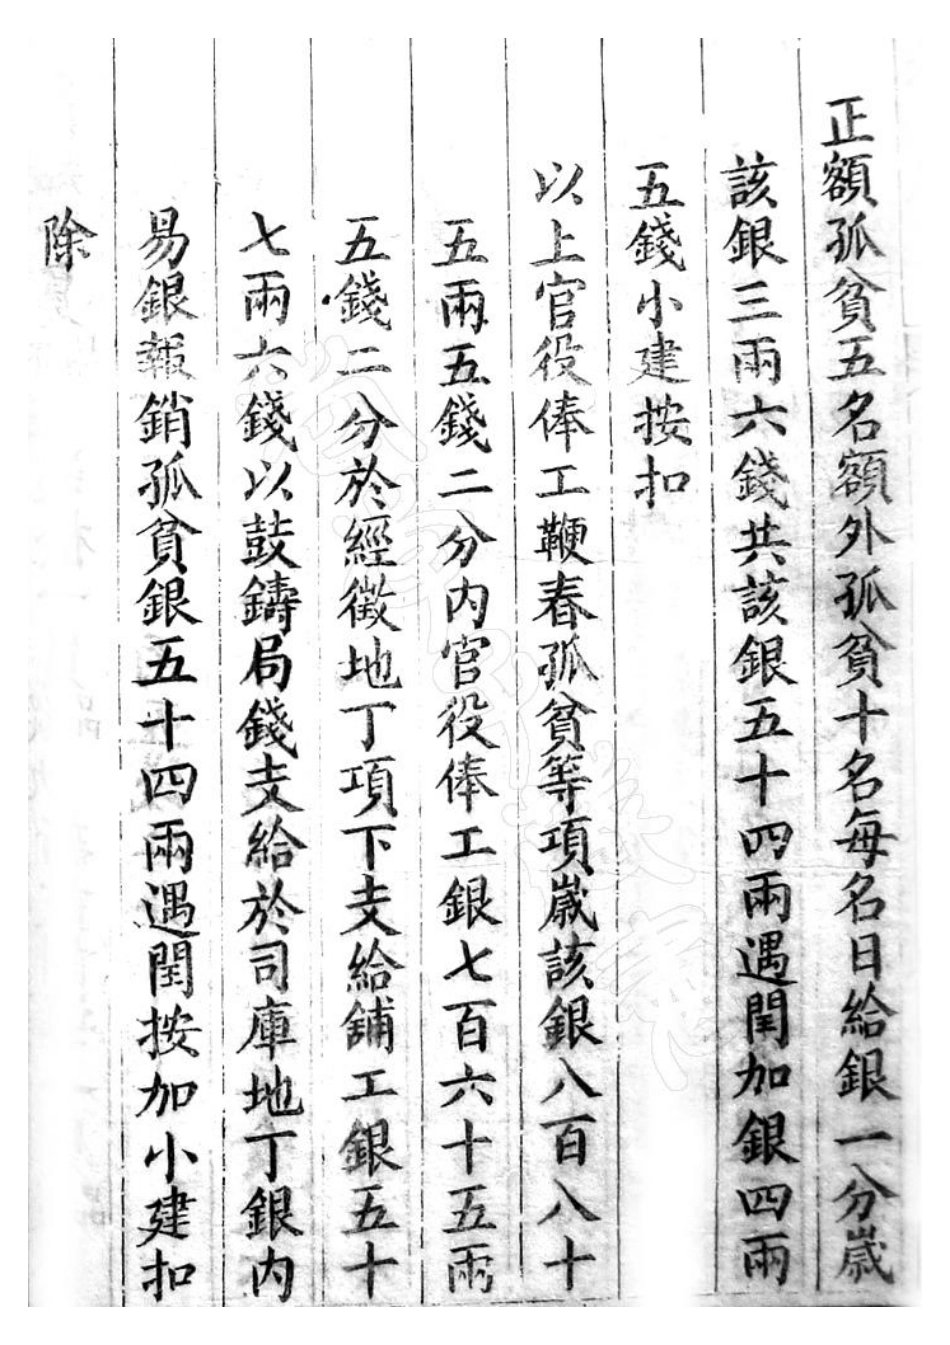 正額孤貧五名額外孤貧十名每名日給銀一分歲
該銀三兩六錢共該銀五十四兩遇閏加銀四兩
五錢小建按扣
以上官役俸工鞭春孤貧等項歲該銀八百八十
五兩五錢二分內官役俸工銀七百六十五兩
五錢二分於經徵地丁項下支給舖工銀五十
七兩六錢以鼓鑄局錢支給於司庫地丁銀內
易銀報銷孤貧銀五十四兩遇閏按加小建扣
除